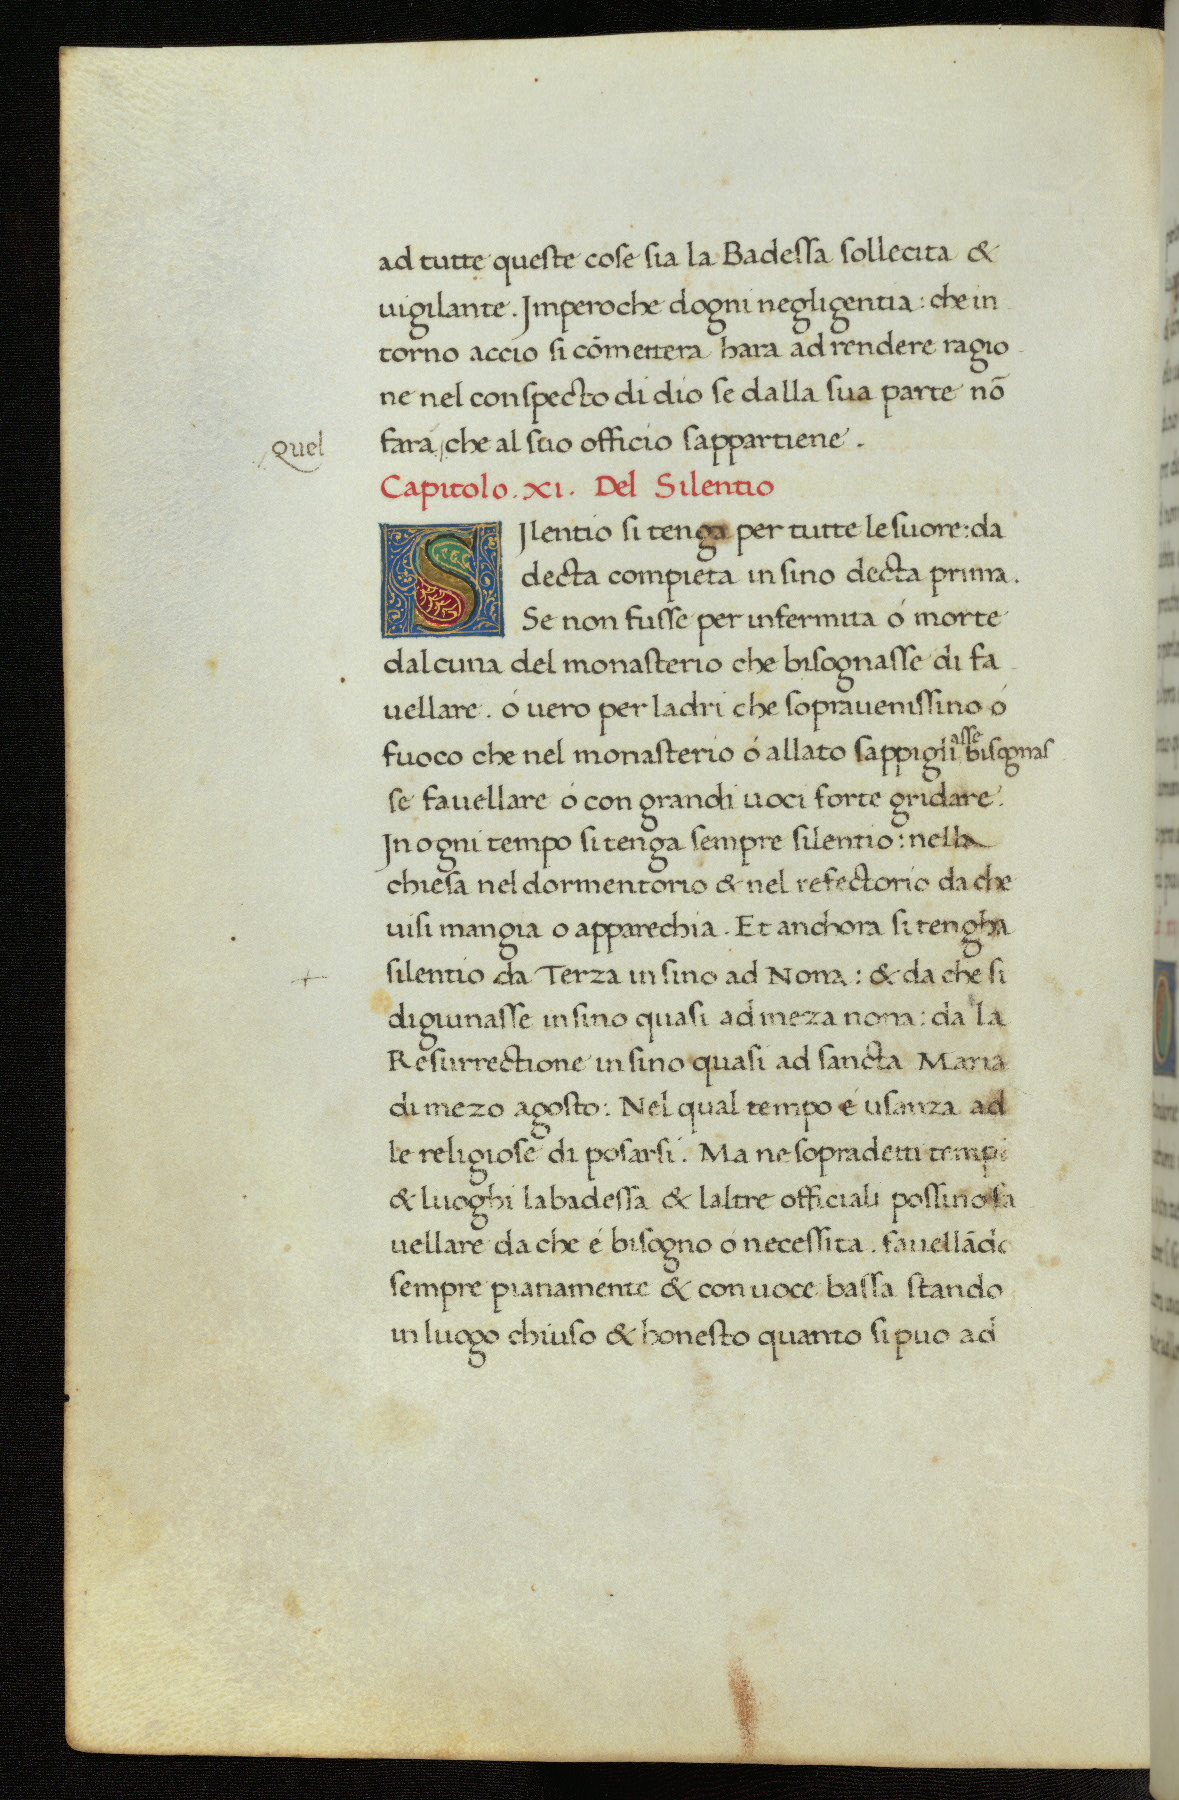 ad tutte queste cose sia la Badessa sollecita &
uigilante. Jmperoche dogni negligentia: che in
torno accio si cōmettera hara ad rendere ragio
ne nel conspecto di dio se dalla sua parte nō
quel
fara che al suo officio sappartiene.
Capitolo. XI. Del Silentio
SJlentio si tenga per tutte le suore: da
decta compieta insino decta prima.
Se non fusse per infermita ó morte
dalcuna del monasterio che bisognasse di fa
uellare. ó uero per ladri che soprauenissino ó
fuoco che nel monasterio ó allato sappigliasse bisognas
se fauellare ó con grandi uoci forte gridare.
Jn ogni tempo si tenga sempre silentio: nella
chiesa nel dormentorio & nel refectorio da che
uisi mangia o apparechia. Et anchora si tengha
+ silentio da Terza insino ad Nona: & da che si
digiunasse insino quasi ad meza nona: da la
Resurrectione insino quasi ad sancta Maria
di mezo agosto: Nel qual tempo é usanza ad
le religiose di posarsi. Ma ne sopradetti tempi
& luoghi labadessa & laltre officiali possino fa
uellare da che é bisogno o necessita. fauellādo
sempre pianamente & con uoce bassa stando
in luogo chiuso & honesto quanto si puo ad